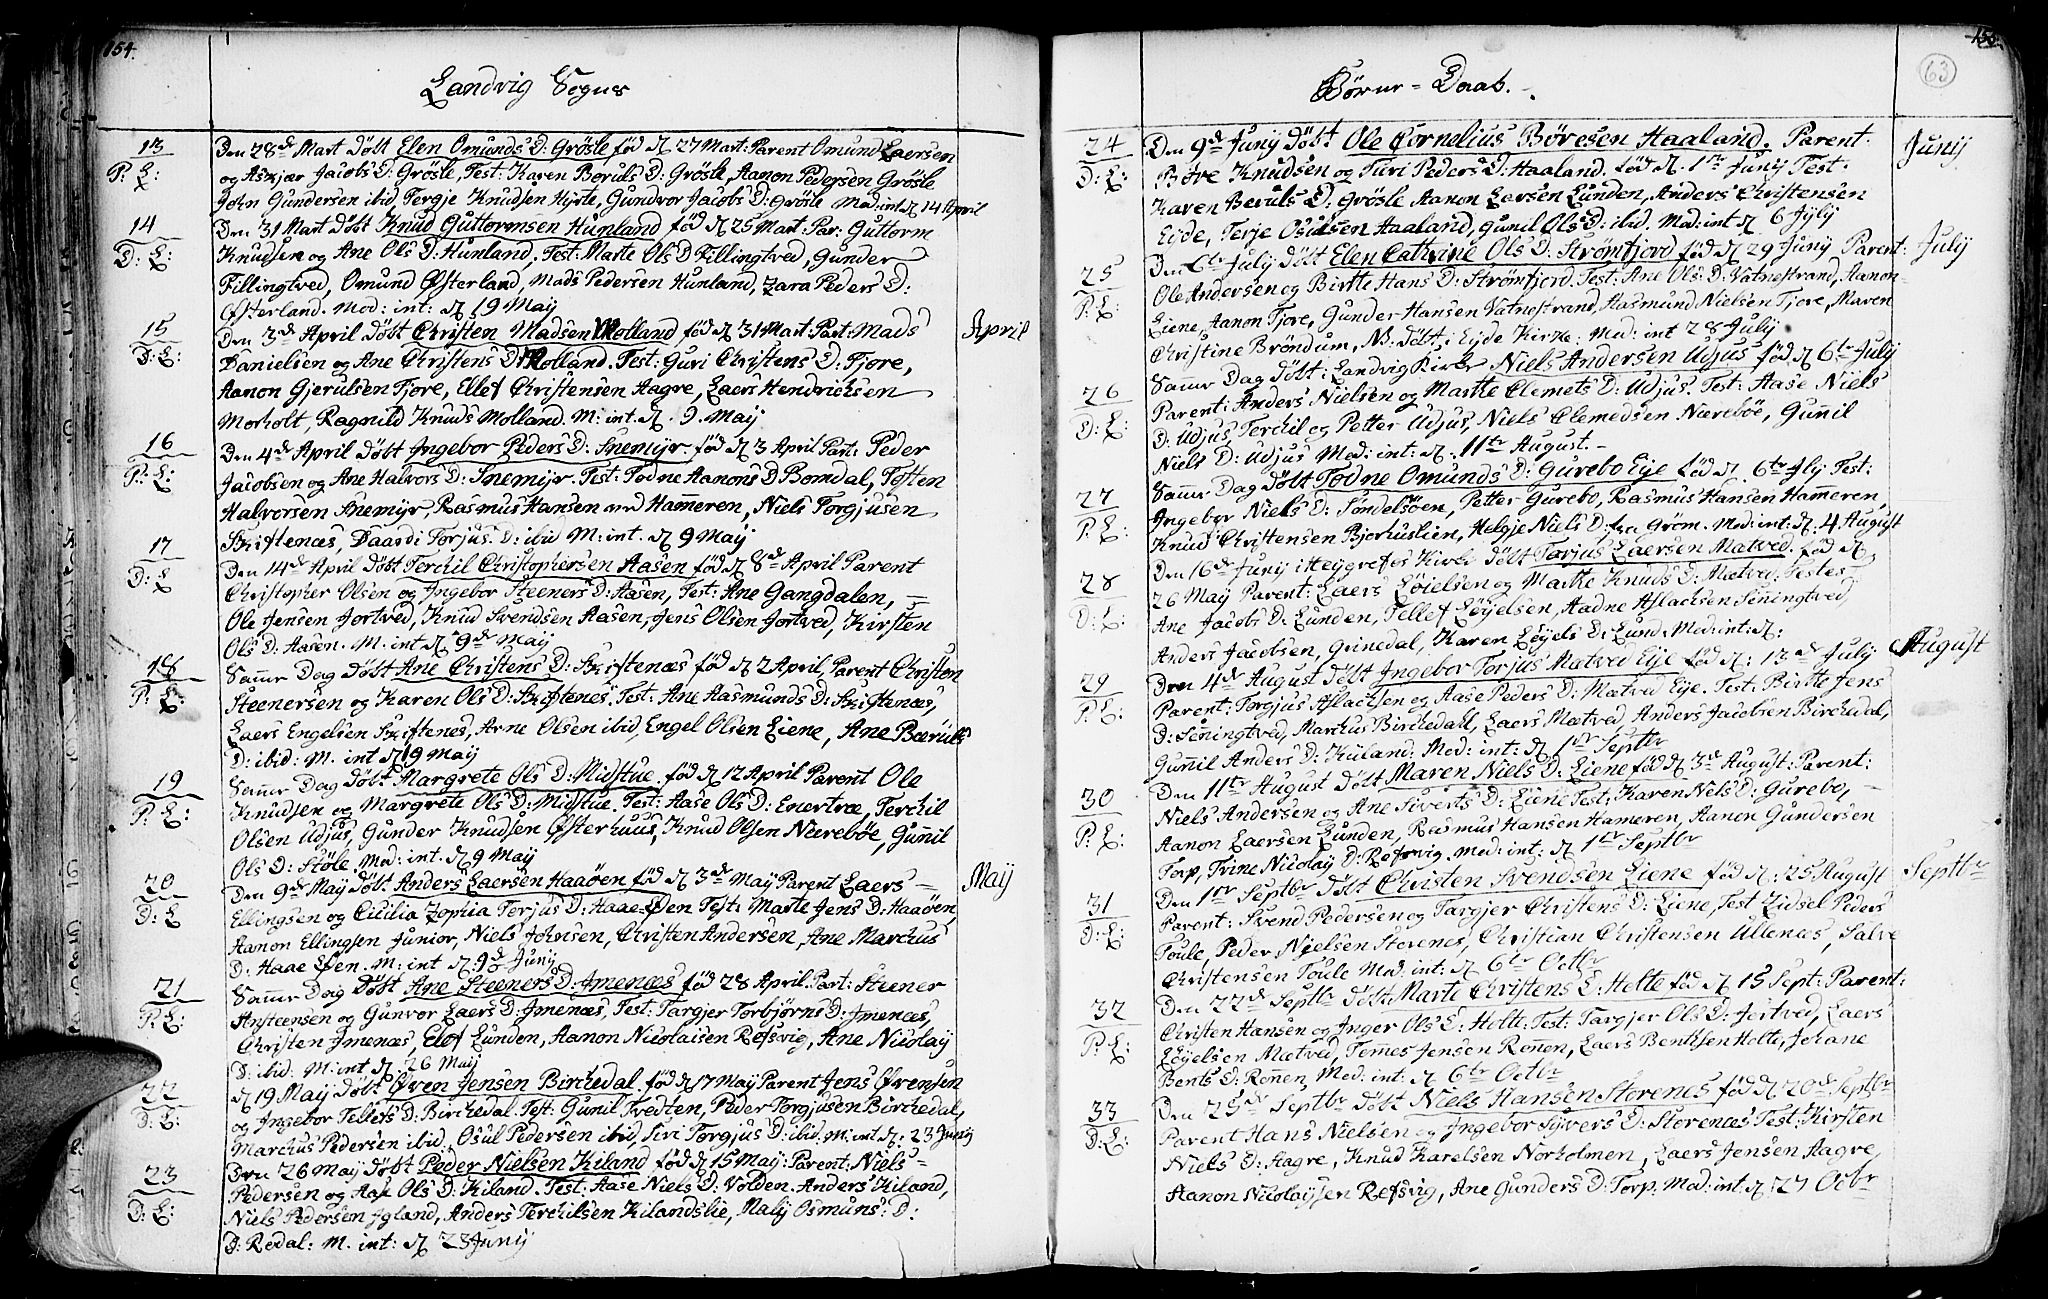 154.
Landvig Sogns
13
P: E:
Den 28de Mart Döbt Elen Omunds D: Grösle föd d. 27 Mart: Parent Omund Laersen
og Askjær Jacobs D: Grösle, Test: Karen Beruls D: Grösle, Aanon Pedersen Grösle
John Gundersen ibid, Tergje Knudsen Hyrte, Gundvor Jacobs D: Grösle Mod: int d. 14 April
14
D: E:
Den 31 Mart Döbt Knud Guttormsen Hunland föd d. 25 Mart. Par: Guttorm
Knudsen og Ane Ols D: Hunland, Test: Marte Ols D Fillingtved, Gunder
Fillingtved, Omund Østerland, Mads Pedersen Hunland, Zara Peders D:
Østerland. Mod: int: d. 19 May
15
D: E:
Den 3de April Döbt Christen Madsen Molland föd d. 31 Mart. Part: Mads
Danielsen og Ane Christens D: Molland. Test: Guri Christens D: Fjore,
Aanon Gjerulsen Fjore, Ellef Christensen Aagre, Laers Hendrichsen
Morholt, Ragnild Knuds Molland. M: int. d. 9. May
April
16
P: E:
Den 4de April Döbt Ingebor Peders D: Snemyr. föd d. 3 April Part: Peder
Jacobsen og Ane Halvors D: Snemyr. Test: Todne Aanons D Bomdal, Tosten
Halvorsen Snemyr, Rasmus Hansen ved Hammeren, Niels Torgjusen
Skiftenæs, Taarand Torjus. D: ibid M: int. d. 9 May
17
D: E
Den 14de April Döbt Terchil Christophersen Aasen föd d. 8de April Parent
Christopher Olsen og Ingebor Steeners D: Aasen, Test: Ane Gangdalen,
Ole Jensen Jortved, Knud Svendsen Aasen, Jens Olsen Jortved, Kirsten
Ols D: Aasen. M. int d. 9de May
18
P: E:
Samme Dag Döbt Ane Christens D: Skiftenæs föd d. 2 April, Parent Christen
Steenersen og Karen Ols D: Skiftenes. Test: Ane Aasmunds D: Skiftenæs,
Laers Engelsen Skiftenes, Arne Olsen ibid, Engel Olsen Liene, Ane Bæruls
D: ibid: M. int d. 19 May
19
P: E:
Samme Dag Döbt Margrete Ols D: Midstue. föd d. 12 April Parent Ole
Knudsen og Margrete Ols D: Midstue. Test: Aase Ols D: Enertræ, Terchil
Olsen Udjus, Gunder Knudsen Østerhuus, Knud Olsen Nærebøe, Gunnil
Ols D: Støle. Mod: int. d. 9 May
20
D: E
Den 9de May Döbt Anders Laersen Haaöen föd d. 3de May Parent Laers
Ellingsen og Cicilia Zophia Terjus D: Haae-Øen Test: Marte Jens D: Haaöen,
Aanon Ellingsen Junior, Niels Johnsen, Christen Andersen, Ane Marchus
D: Haae Øen. M: int d. 9de Junij
Maij
21
P: E:
Samme Dag Döbt Ane Steeners D: Imenæs föd 28 April. Part: Steener
Ansteensen og Gunvor Laers D: Imenæs, Test: Targjer Torbjörns D: Imenæs,
Christen Imenæs, Elof Lunden, Aanon Nicolaisen Refsvig, Ane Nicolay
D: ibid: M: int d. 26 Maij
22
D: E:
d. 19 Maij Döbt Øven Jensen Birchedal. föd d. 17 Maij Parent Jens Øvensen
og Ingebor Tellefs D: Birchedal. Test: Gunnil Tvedten, Peder Torgjusen Birchedal,
Marchus Pedersen ibid, Osul Pedersen ibid, Siri Torgjus D: ibid. M: int d. 23 Junij
23
D: E:
Den 26 May Döbt Peder Nielsen Kiland föd d. 15 May: Parent: Niels
Pedersen og Aase Ols D: Kiland. Test: Aase Niels D: Volden. Anders Kiland,
Niels Pedersen Igland, Anders Terchilsen Kilandslie, Malij Osmuns: D:
D: Redal: M. int: d. 23 Junij
155.
63
Börne-Daab.
24
D: E:
Den 9de Junij Döbt Ole Cornelius Böresen Haaland. Parent:
Böre Knudsen og Turi Peders D: Haaland. föd d. 1te Junij Test:
Karen Beruls D. Grösle Aanon Larsen Lunden, Anders Christensen
Eyde, Terje Osulsen Haaland, Gunnil Ols D: ibid. Mod: int d. 6 Jyly
Junij
25
P: E:
Den 6te Julij Döbt Elen Cathrine Ols D: Strömfjord föd d. 29 Junij Parent:
Ole Andersen og Birtte Hans D: Strömfjord. Test: Ane Ols: D: Vatnestrand, Aanon
Liene, Aanon Fjore, Gunder Hansen Vatnestrand, Aasmund Nielsen Fjore, Maren
Christine Bröndum, NB. Döbt i Eyde Kirke. Mod: int 28 Julij
Julij
26
D: E:
Samme Dag Döbt i Landvig Kirke Niels Andersen Udjus föd d. 6te Julij
Parent: Anders Nielsen og Martte Clemets D: Udjus. Test: Aase Niels
D: Udjus, Terchil og Petter Udjus, Niels Clemedsen Nærebøe, Gunnil
Niels D: Udjus Mod: int: d. 11te August.
27
P: E:
Samme Dag Döbt Todne Omunds D: Gurebo Eye föd d. 6te Jly Test:
Ingebor Niels D: Söndelsöen, Petter Gurebo, Rasmus Hansen Hammeren,
Knud Christensen Bjoruslien, Helgje Niels D: fra Gröm. Mod: int: d. 4 August
28
D: E:
Den 16de Junij i Heygrefos Kirke Döbt Torjus Laersen Mætved. föd d.
26 May Parent: Laers Löjelsen og Martte Knuds D: Mætved. Testes
Ane Jacobs D. Lunden, Tellef Löyelsen, Aadne Aslachsen Sönningtved,
Anders Jacobsen, Grinedal, Karen Löyels D: Lund. Mod: int: d.
29
P: E:
Den 4de August Döbt Ingebor Torjus Mætved Eije föd d: 13de Julij
Parent: Torgjus Aslachsen og Aase Peders D: Mætved Eije. Test: Birtte Jens
D: Senningtved, Marchus Birchedal, Laers Mætved, Anders Jacobsen Birchedal,
Gunnil Anders D: Kiiland. Mod: int: d. 1te Septbr
August
30
P: E:
Den 11te August Döbt Maren Niels D: Liene föd d. 3de August: Parent:
Niels Andersen og Ane Siverts D: Liene Test: Karen Niels D: Gurebo,
Aanon Laersen Lunden, Rasmus Hansen Hameren, Aanon Gundersen
Torp, Trine Nicolay D: Refsvig. Mod: int: d. 1te Septbr
31
D: E:
Den 1te Septbr Döbt Christen Svendsen Liene föd d: 25 August
Parent: Svend Pedersen og Targjer Christens D: Liene, Test Zidsel Peders
Foule, Peder Nielsen Storenes, Christian Christensen Ullenæs, Salve
Christensen Foule Mod: int: d. 6te Octbr
Septbr
32
P: E:
Den 22de Septbr Döbt Marte Christens D: Holte föd d. 15 Sept: Parent:
Christen Hansen og Inger Ols D: Holte: Test: Targjer Ols D: Jortved, Laers
Löyelsen Mætved, Tommes Jensen Rønnen, Laers Benthsen Holte, Johane
Bents D: Rönen, Mod: int: d. 6te Octbr
33
D: E:
Den 25de Septbr Döbt Niels Hansen Storenes föd d. 20de Septbr
Parent Hans Nielsen og Ingebor Syvers D: Storenæs Test: Kirsten
Niels D: Aagre, Knud Karelsen Norholmen, Laers Jensen Aagre,
Aanon Nicolaysen Refsvig, Ane Gunders D: Torp. Mod: int: d. 27 Octbr